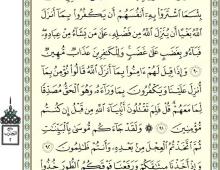 بِئْسَمَا ٱشْتَرَوْا۟ بِهِۦٓ أَنفُسَهُمْ أَن يَكْفُرُوا۟ بِمَآ أَنزَلَ
ٱللَّهُ بَغْيًا أَن يُنَزِّلَ ٱللَّهُ مِن فَضْلِهِۦ عَلَىٰ مَن يَشَآءُ مِنْ عِبَادِهِۦ
فَبَآءُو بِغَضَبٍ عَلَىٰ غَضَبٍ وَلِلْكَٰفِرِينَ عَذَابٌ مُّهِينٌ
٩٠ وَإِذَا قِيلَ لَهُمْ ءَامِنُوا۟ بِمَآ أَنزَلَ ٱللَّهُ قَالُوا۟ نُؤْمِنُ بِمَآ
أُنزِلَ عَلَيْنَا وَيَكْفُرُونَ بِمَا وَرَآءَهُۥ وَهُوَ ٱلْحَقُّ مُصَدِّقًا
لِّمَا مَعَهُمْ قُلْ فَلِمَ تَقْتُلُونَ أَنۢبِيَآءَ ٱللَّهِ مِن قَبْلُ إِن كُنتُم
مُّؤْمِنِينَ ٩١ وَلَقَدْ جَآءَكُم مُّوسَىٰ بِٱلْبَيِّنَٰتِ
ثُمَّ ٱتَّخَذْتُمُ ٱلْعِجْلَ مِنۢ بَعْدِهِۦ وَأَنتُمْ ظَٰلِمُونَ ٩٢
وَإِذْ أَخَذْنَا مِيثَٰقَكُمْ وَرَفَعْنَا فَوْقَكُمُ ٱلطُّورَ خُذُوا۟